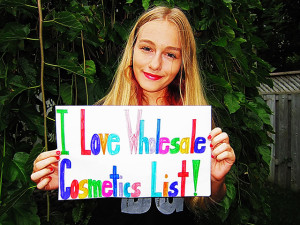 I Love Wholesale
Cosmetics List!